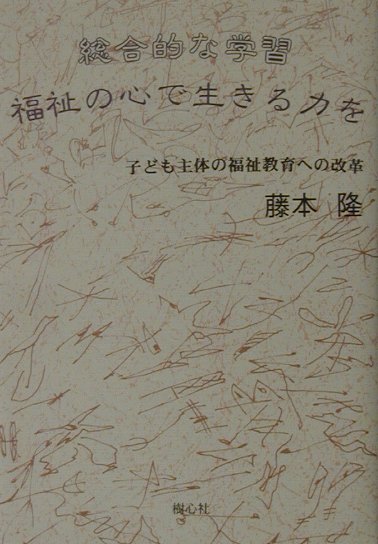 総合的な学習
福祉の心で生きる力を
子ども主体の福祉教育への改革
藤本 隆
樹心社